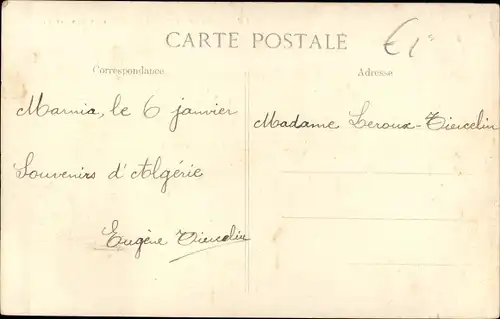 CARTE POSTALE
€1=
Correspondance
Adresse
Marnia, le 6 janvier
Madame Leroux-Tiercelin
Souvenirs d'Algérie
Eugène Tiercelin